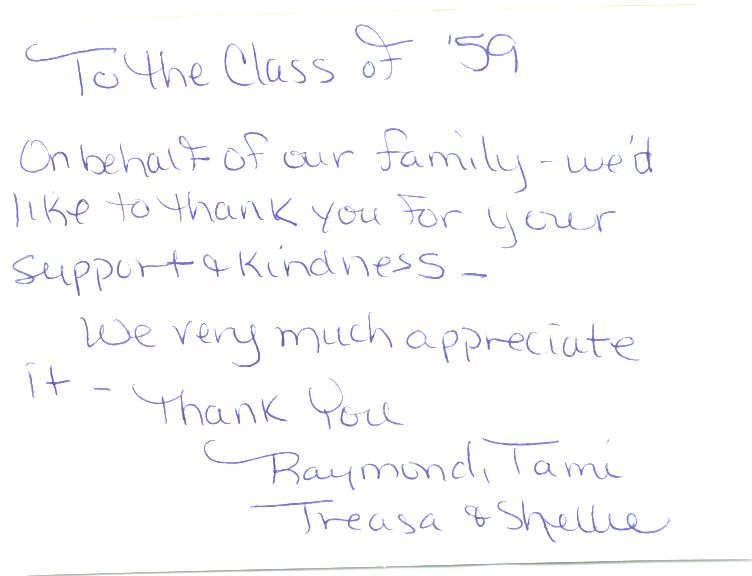 To the Class of '59
On behalf of our family - we'd
like to thank you for your
support & kindness -
We very much appreciate
it - Thank You
Raymond, Tami
Treasa & Shellie